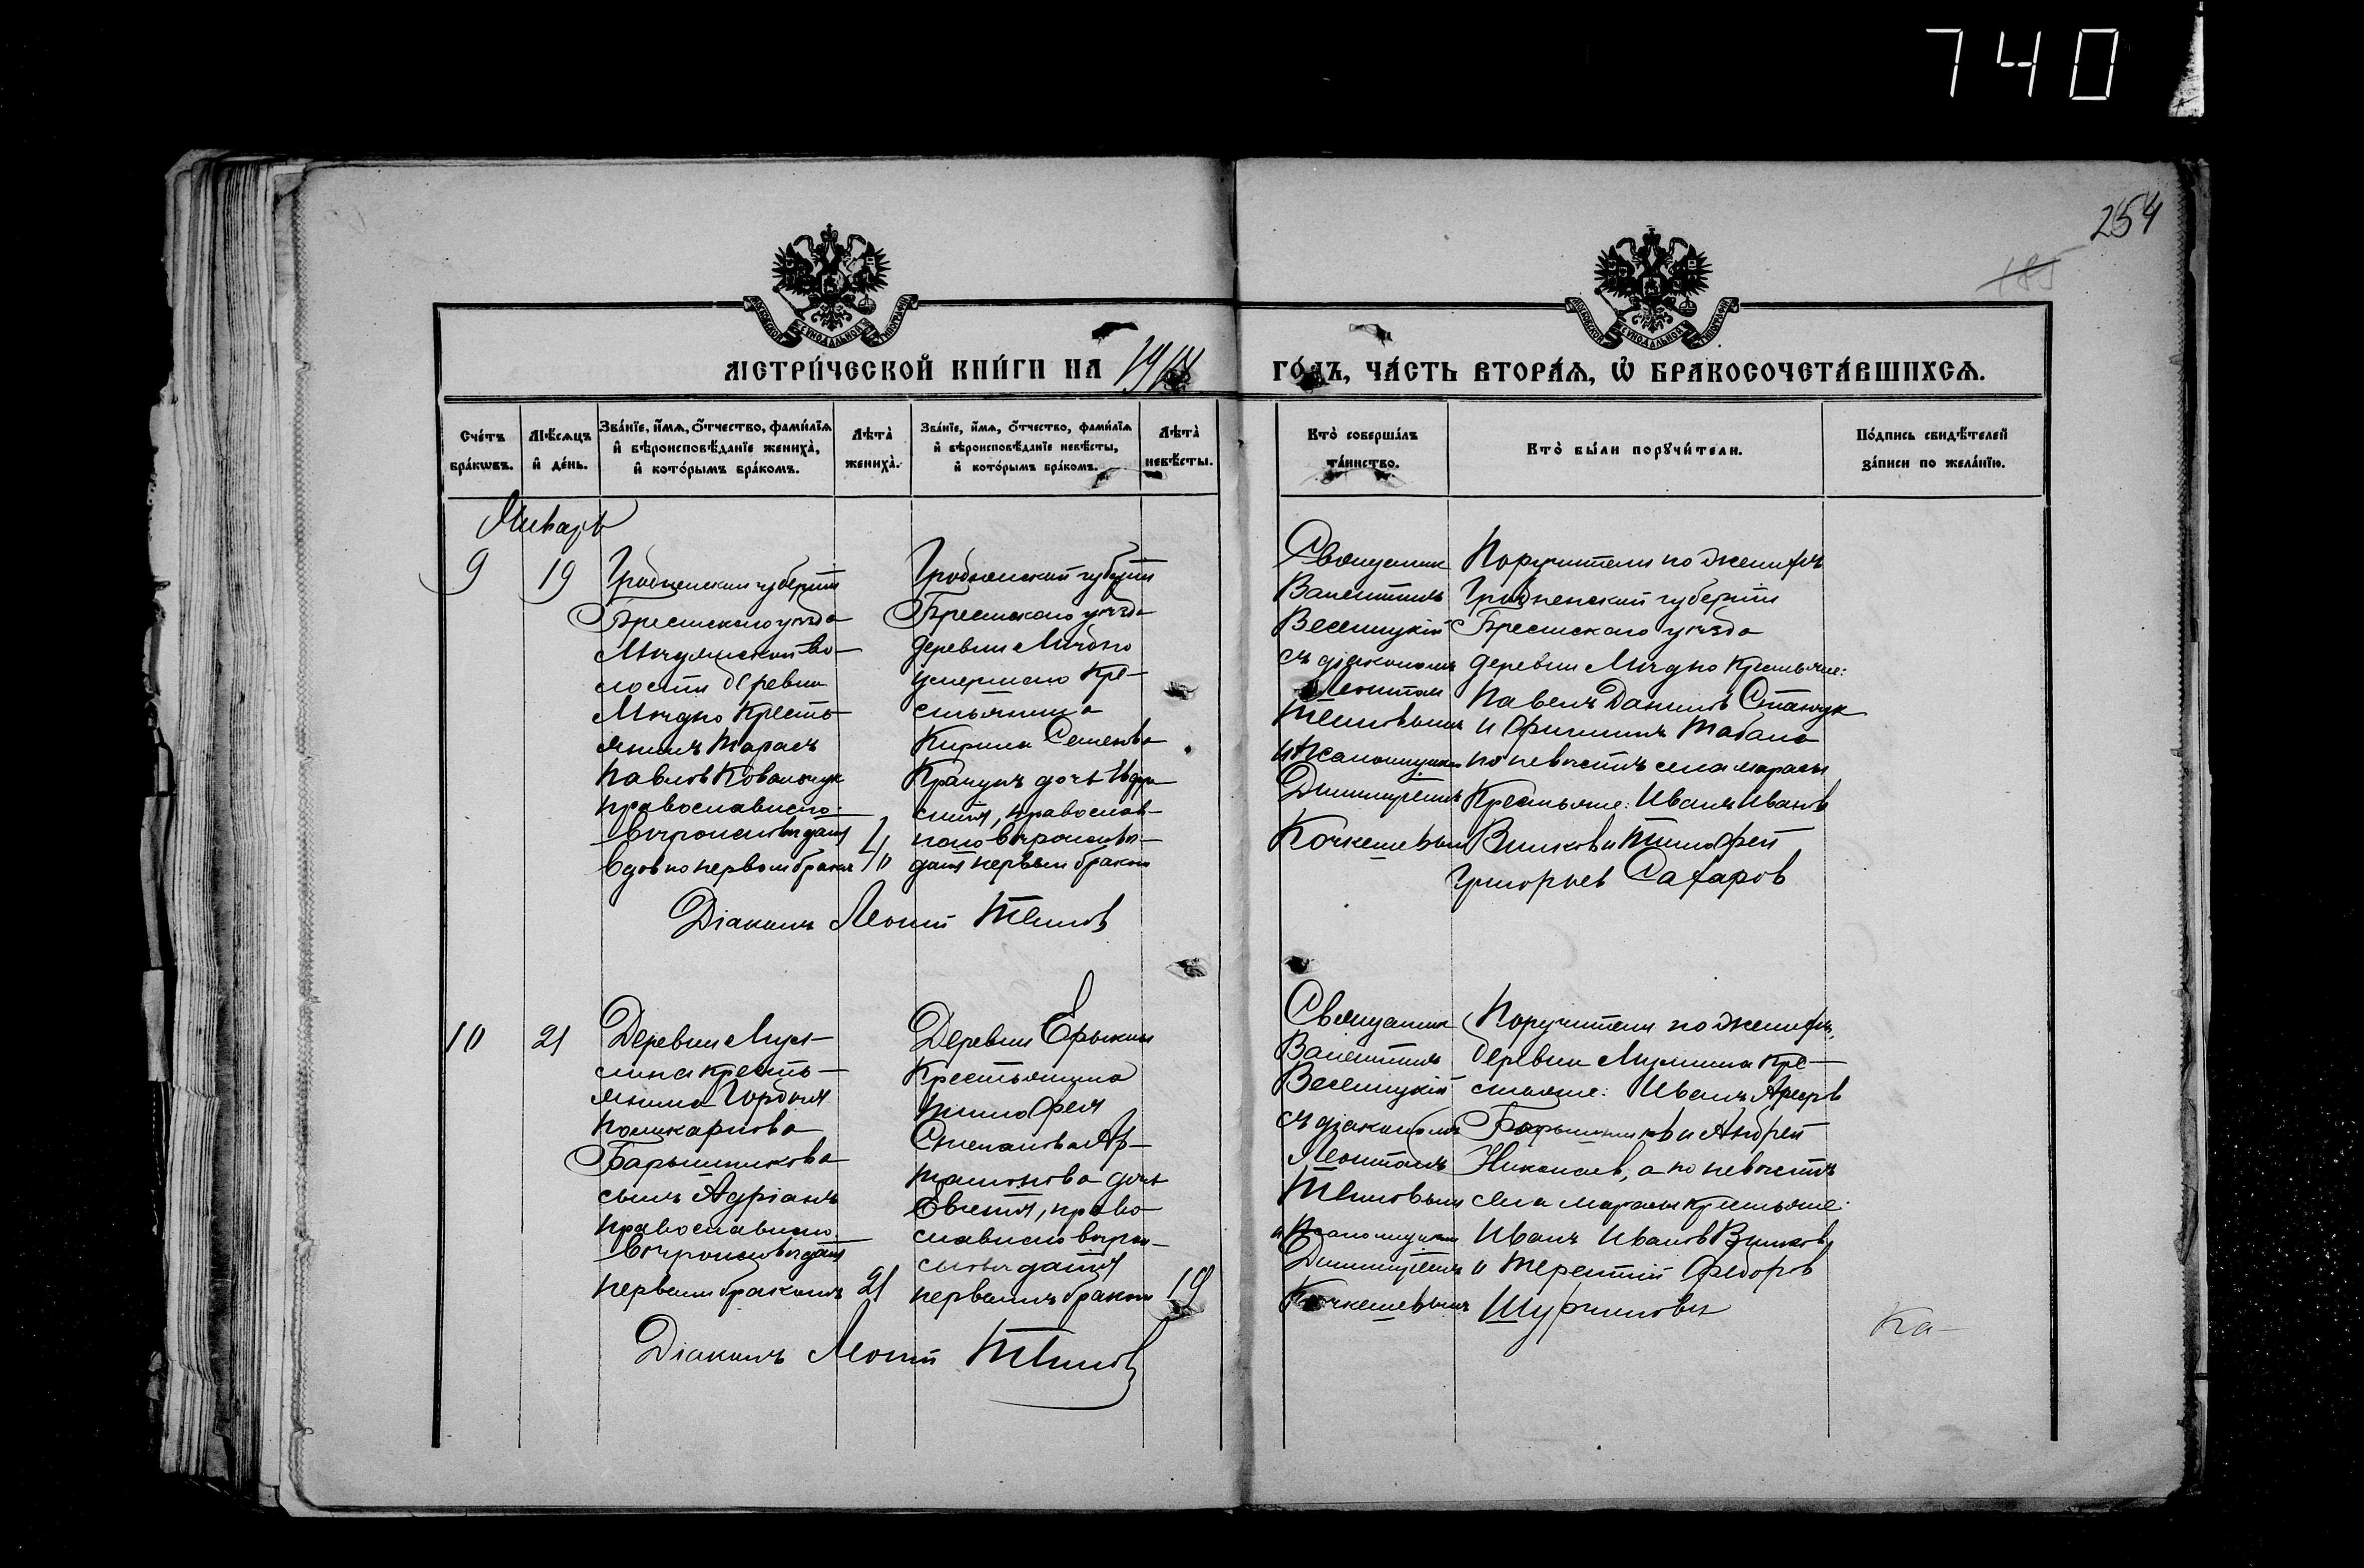 740
254
185
МЕТРИ́ЧЕСКОЙ КНИ́ГИ НА 1918 ГО́ДЪ, ЧА́СТЬ ВТОРА́Я, Ѡ҆ БРАКОСОЧЕТА́ВШИХСѦ.
Сче́тъ бра́кѡвъ.
Мѣ́сѧцъ и҆ де́нь.
Зва́нїе, и҆́мѧ, ѻ҆́тчество, фами́лїѧ и҆ вѣроисповѣ́данїе жениха̀, и҆ кото́рымъ бра́комъ.
Лѣта̀ жениха̀.
Зва́нїе, и҆́мѧ, ѻ҆́тчество, фами́лїѧ и҆ вѣроисповѣ́данїе невѣ́сты, и҆ кото́рымъ бра́комъ.
Лѣта̀ невѣ́сты.
Кто̀ соверша́лъ та́инство.
Кто̀ бы́ли порꙋчи́тели.
По́дпись свидѣ́телей за́писи по жела́нїю.
Январь
9
19
Гродненской губернiи
Брестскаго уѣзда
во-
лости деревни
Мѣдно кресть-
янинъ Тарасъ
Павловъ Ковальчук
православнаго
вѣроисповѣданiя
вдов по первом бракѣ
40
Гродненской губернiи
Брестскаго уѣзда
деревни Мѣдно
умершаго кре-
стьянина
Кирила Семенова
дочь Ефро-
синiя, православ-
наго вѣроисповѣ-
данiя первым браком
Священник
Валентинъ
Веселицкiй
съ дiакономъ
Леонтiем
Тепловымъ
и псаломщиком
Димитрiемъ
Кочкшевым
Поручители по женихѣ
Гродненской губернiи
Брестскаго уѣзда
деревни Мѣдно крестьяне:
Павелъ Данилов Станчук
и Филиппъ Табала
по невѣстѣ села Марасы
крестьяне: Иванъ Иванов
Вилков и Тимофей
Григорьев Сахаров
Дiаконъ Леонтiй Теплов
10
21
Деревни Мул-
лина кресть-
янина Гордѣя
Поликарпова
Барышникова
сынъ Адрiанъ
православнаго
вѣроисповѣданiя
первым бракомъ
21
Деревни Ерыкли
крестьянина
Тимофея
Степанова Ар-
тамонова дочь
Евгенiя, право-
славнаго вѣрои-
сповѣданiя
первымъ браком
19
Священник
Валентинъ
Веселицкiй
съ дiакономъ
Леонтiемъ
Тепловым
и псаломщиком
Димитрiемъ
Кочкшевымъ
Поручители по женихѣ
деревни Муллина кре-
стьяне: Иванъ
Барышников и Андрей
Николаев, а по невѣстѣ
села Марасы крестьяне:
Иванъ Иванов Вилков
и Терентiй Федоров
Дiаконъ Леонтiй Теплов
Ка-